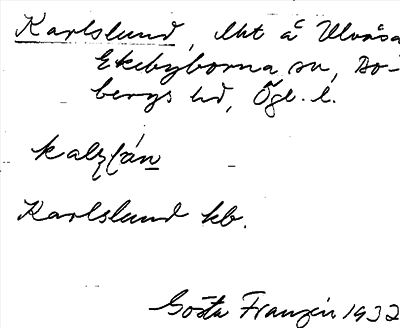 Karlslund, lht å Ulvåsa
Ekebyborna sn, Bo-
bergs hd, Ögl. l.
Karlslund kb.
Gösta Franzén 1932